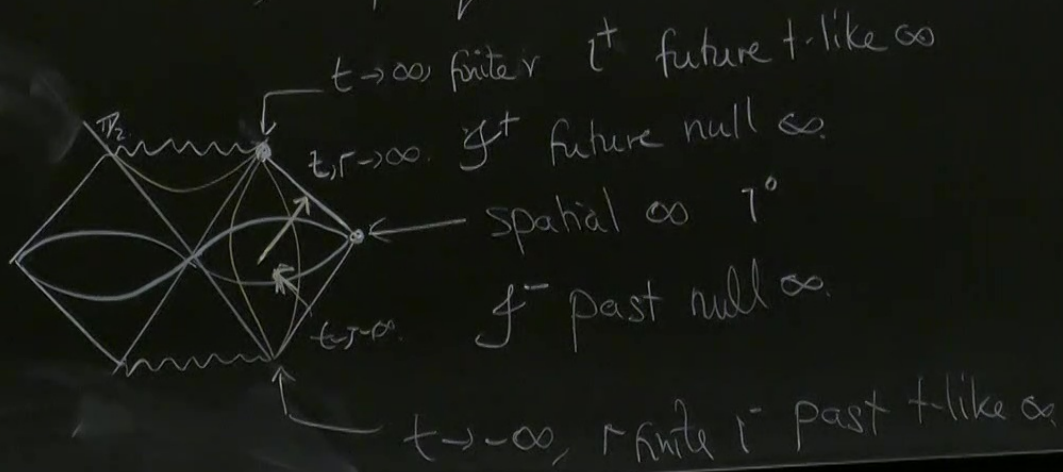 t→∞, finite r i⁺ future t-like ∞
π/2
t,r→∞. 𝒥⁺ future null ∞.
spatial ∞ i⁰
𝒥⁻ past null ∞.
t→-∞, r finite i⁻ past t-like ∞